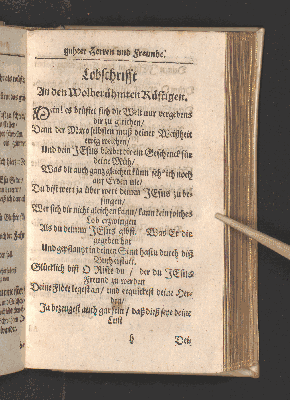 guhter Herren und Freunde.
Lobschrifft
An den Wolberühmten Rüstigen.
Ban! es brüstet sich die Welt nur vergebens
dir zu gleichen/
Dann der Mars selbsten muß deiner Weißheit
ewig weichen/
Und dein JEsus bleibet dir ein Geschenck für
deine Müh/
Was dir auch gantz gleichen könn sich noch
auf Erden nie.
Du bist wert ja über wert deinen JEsus zu be-
singen/
Wer sich dir nicht gleichen kann/ kann kein solches
Lob erzwingen
Als du deinem JEsus gibst. Was Er die
gegeben hat
Und gepflantzt in deinen Sinn hastu durch diß
Glücklich bist O Rist du / der du JEsus
Freund zu werden
Deine Flöte legest an/ und erquickest deine Her-
den/
Ja bezeugest auch gar fein/ daß diß seye deine
Lust
h